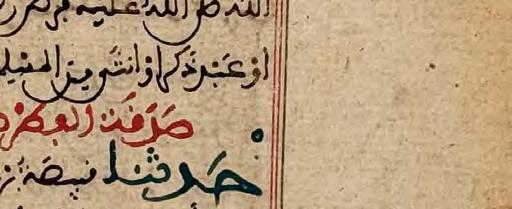 الله صلى الله عليه فرض ز
او عبد ذكر او انثى من المسلمـ
صدقة الفطر
حدثنا قبيصة بن